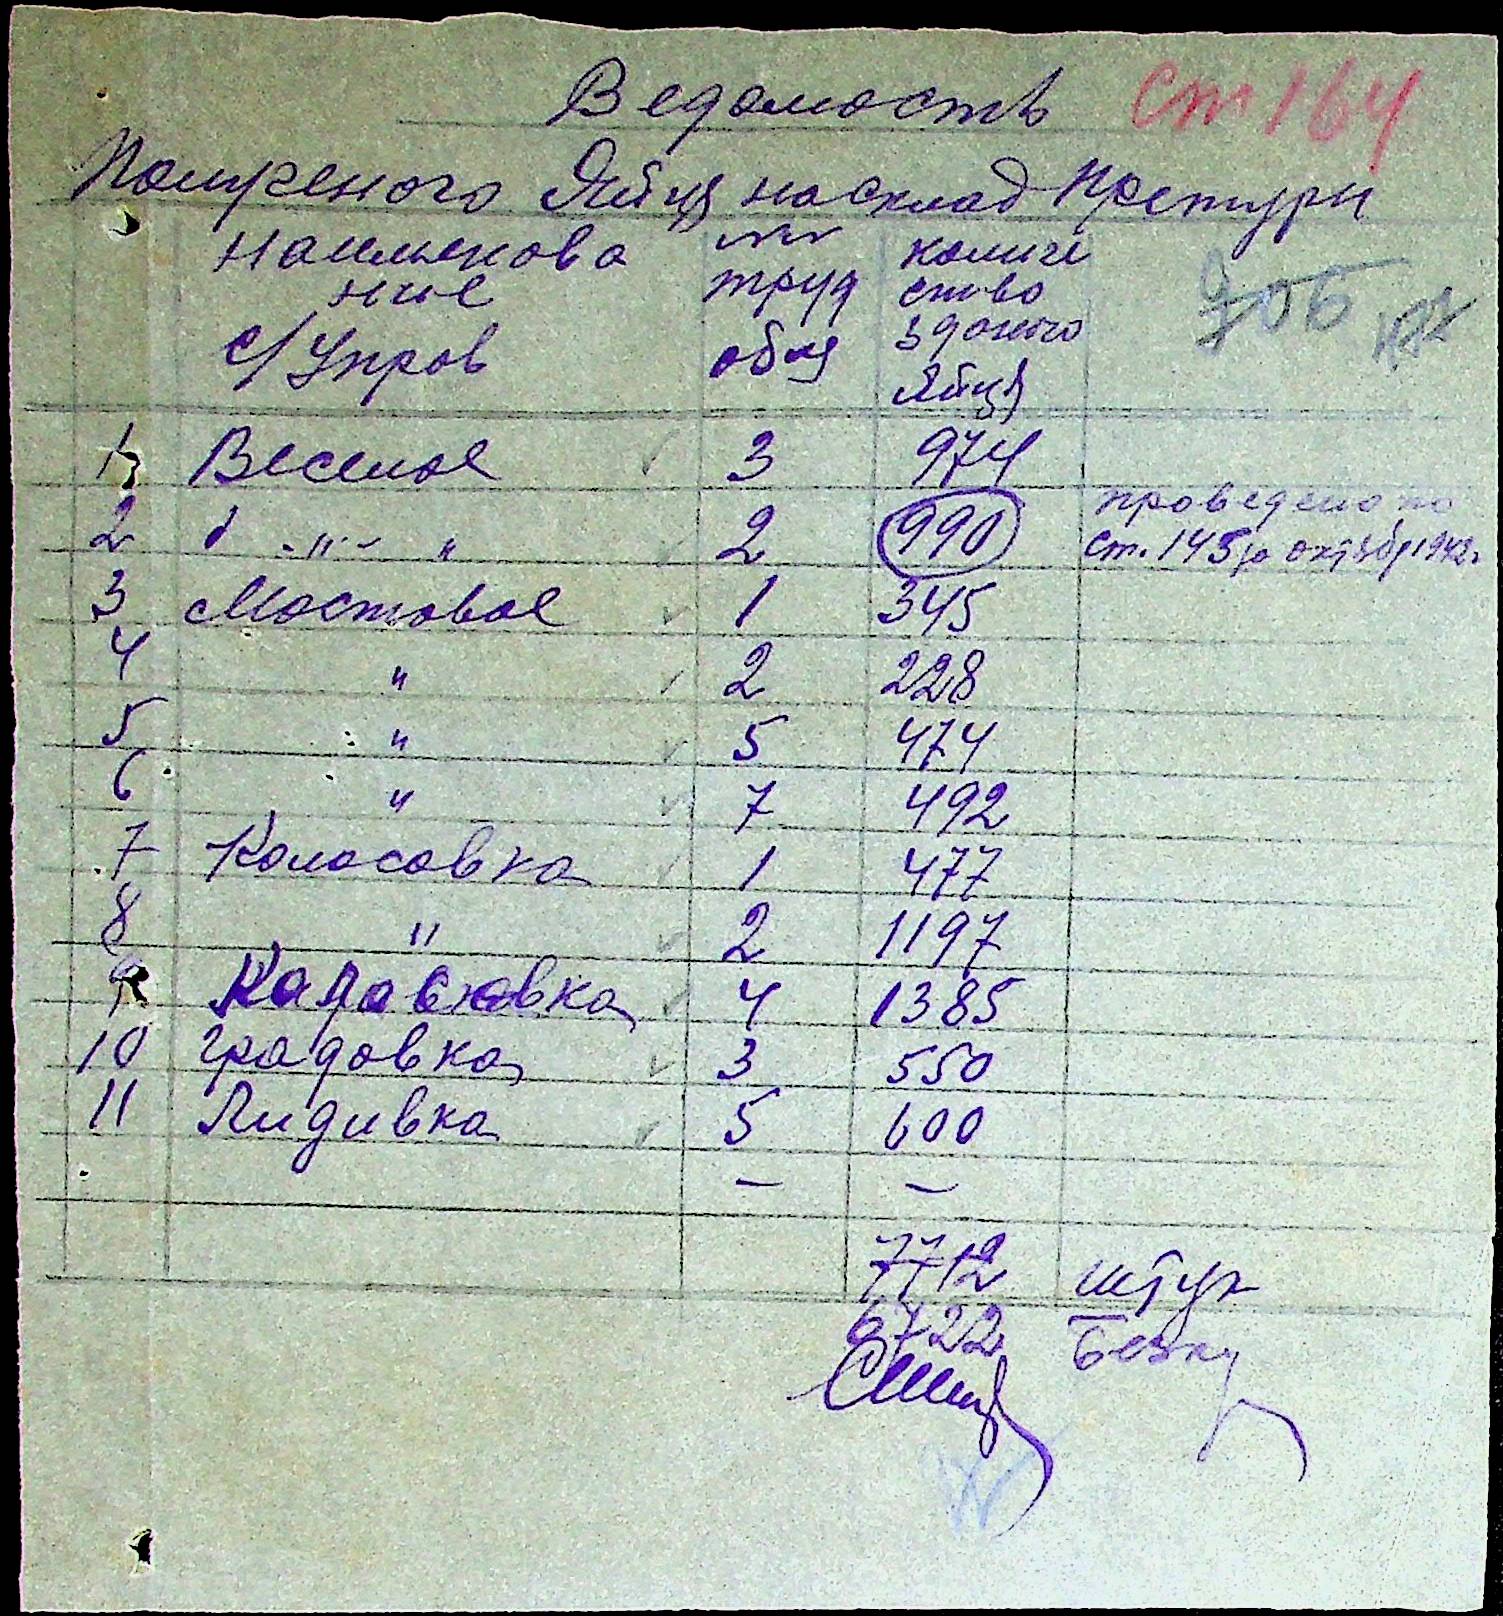 Ведомость ст 164
Полученого Яйця на склад Претури
Наименова
ние
С/Упров
№№
труд
общ
количе
ство
зданого
Яйця
1 Веселое 3 974
2 -"- " 2 990 проведено по
ст. 145 октябр 1942г
3 Мостовое 1 345
4 " 2 228
5 " 5 474
6 " 7 492
7 Колосовка 1 477
8 " 2 1197
9 4 1385
10 Градовка 3 550
11 Лидивка 5 600
— —
7712 штук
6722